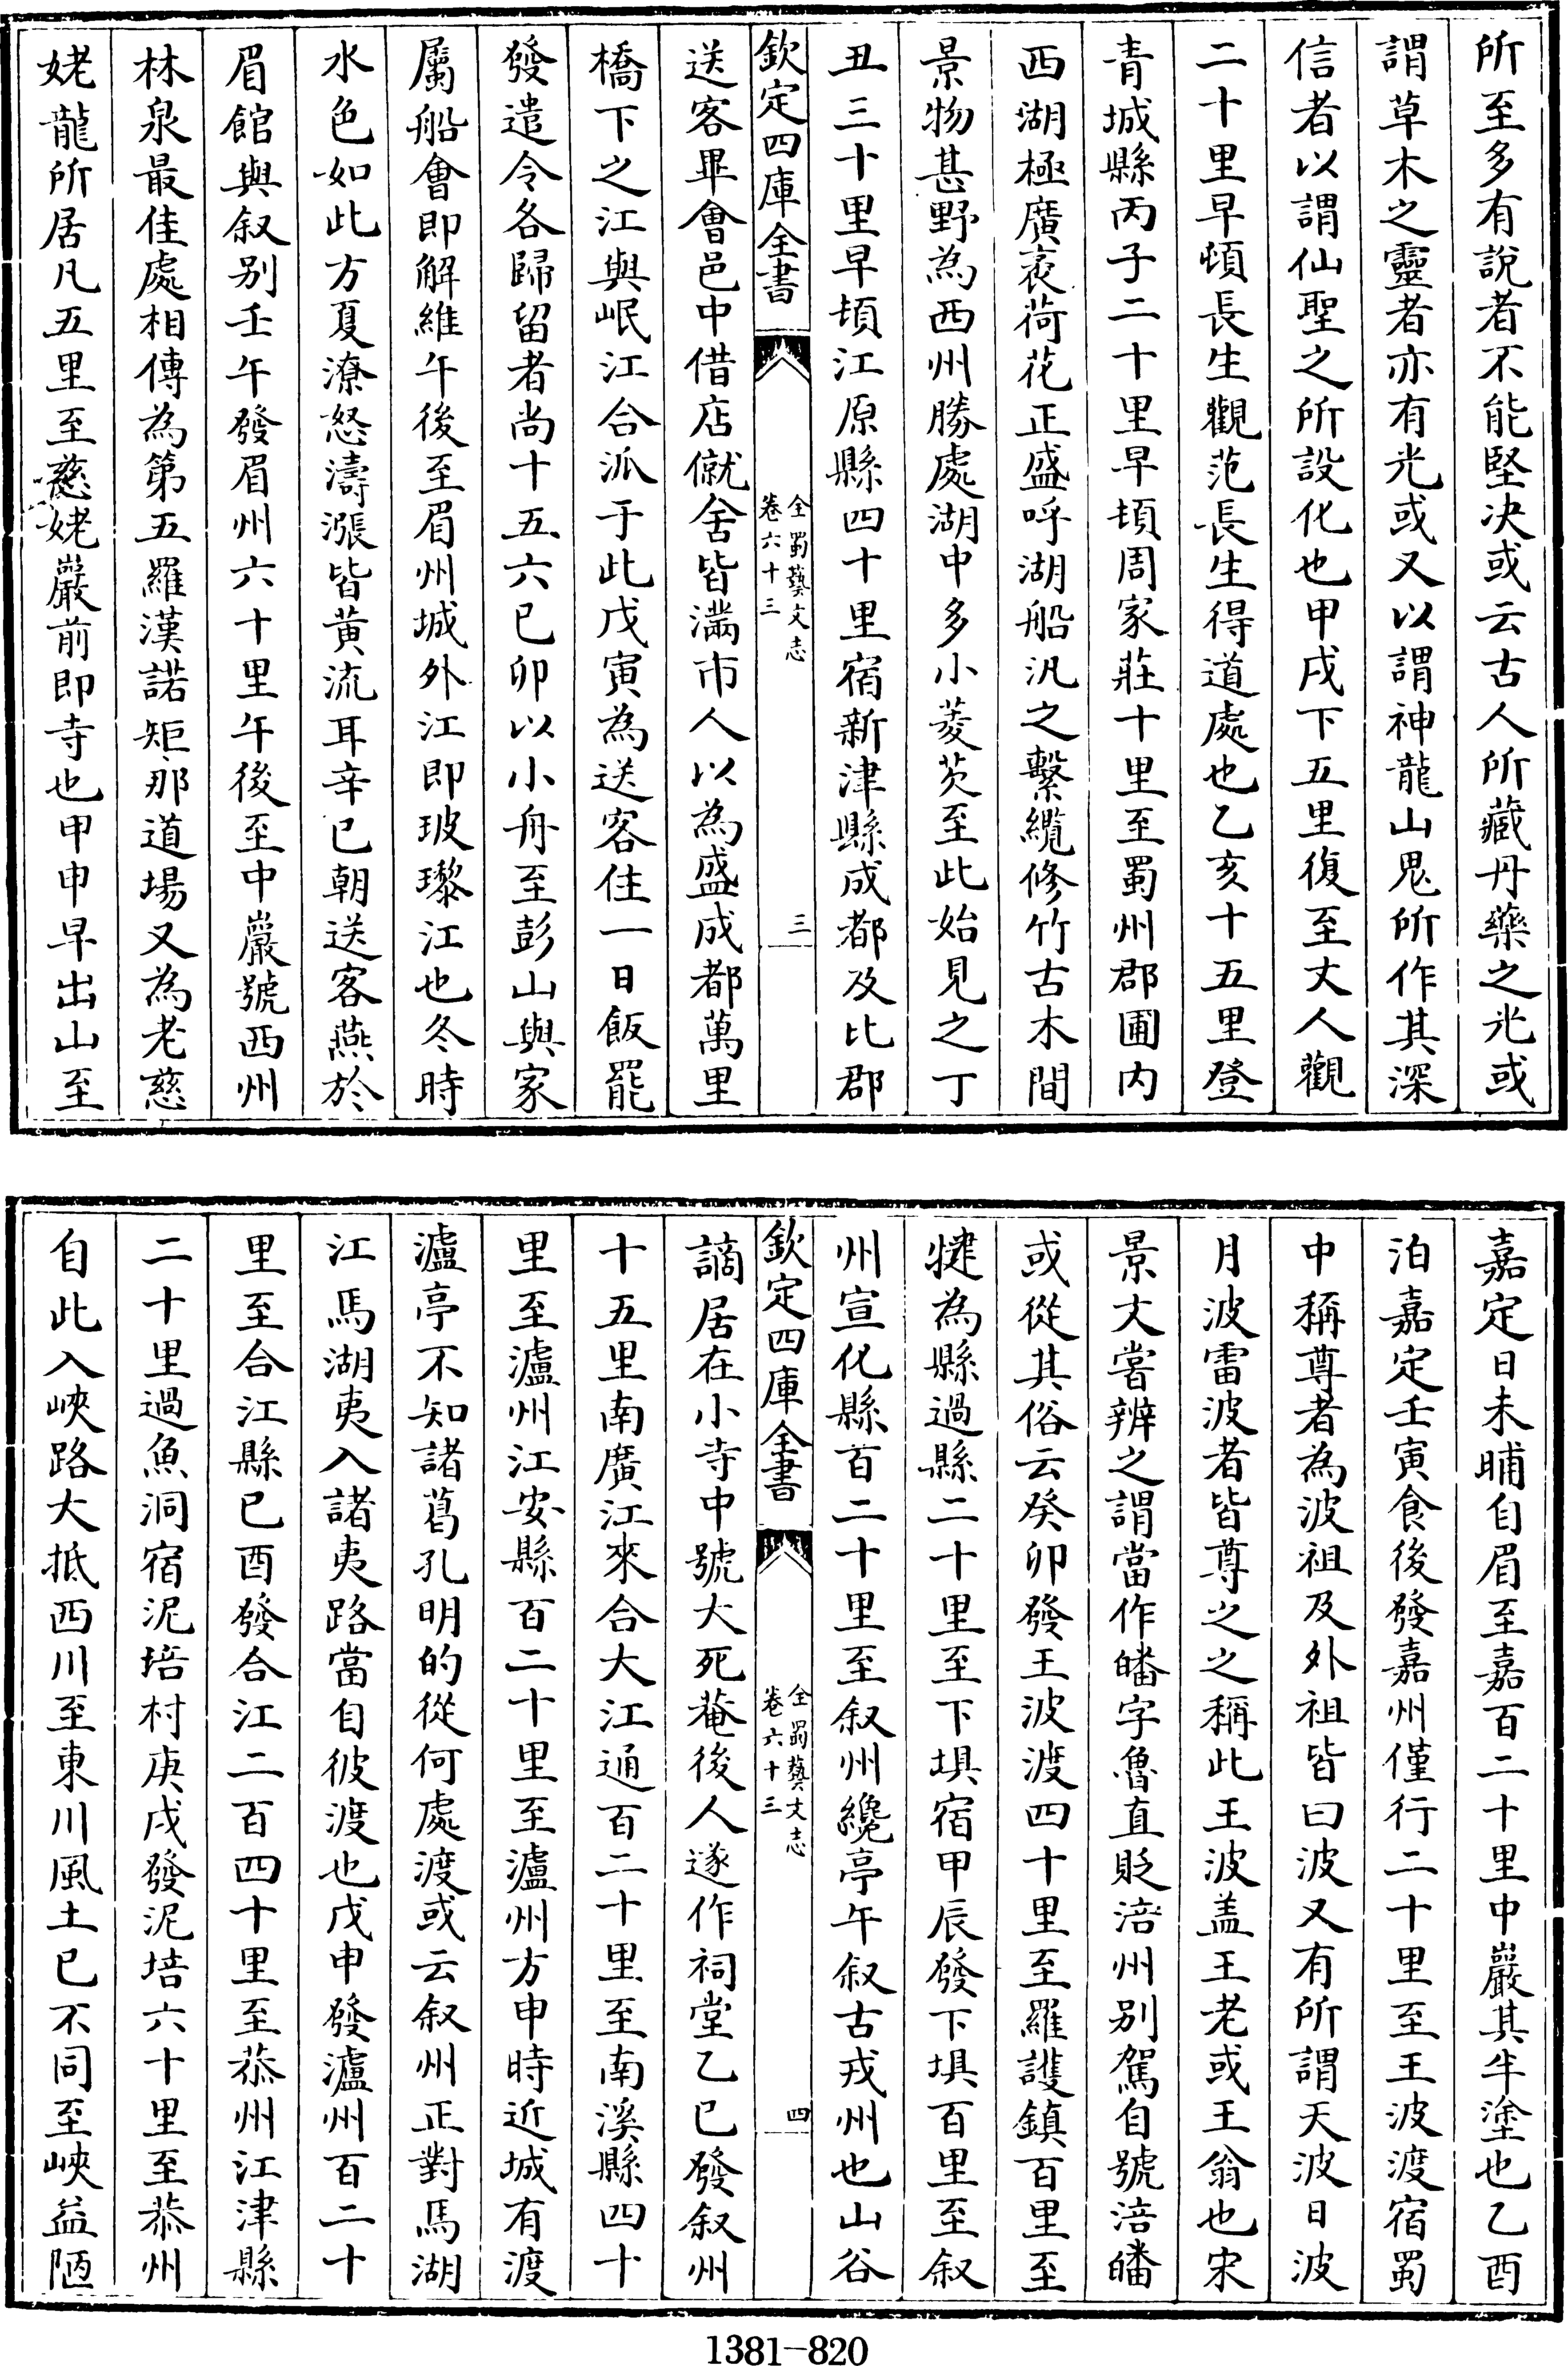 所至多有說者不能堅决或云古人所藏丹藥之光或
謂草木之靈者亦有光或又以謂神龍山鬼所作其深
信者以謂仙聖之所設化也甲戌下五里復至丈人觀
二十里早頓長生觀范長生得道處也乙亥十五里登
青城縣丙子二十里早頓周家莊十里至蜀州郡圃内
西湖極廣袤荷花正盛呼湖船汎之繫纜修竹古木間
景物甚野為西州勝處湖中多小菱芡至此始見之丁
丑三十里早頓江原縣四十里宿新津縣成都及比郡
欽定四庫全書
全蜀藝文志
卷六十三
三
送客畢會邑中借店僦舍皆滿市人以為盛成都萬里
橋下之江與岷江合派于此戊寅為送客住一日飯罷
發遣令各歸留者尚十五六已卯以小舟至彭山與家
屬船會即解維午後至眉州城外江即玻瓈江也冬時
水色如此方夏潦怒濤漲皆黄流耳辛已朝送客燕於
眉館與叙别壬午發眉州六十里午後至中巖號西州
林泉最佳處相傳為第五羅漢諾矩那道場又為老慈
姥龍所居凡五里至慈姥巖前即寺也甲申早出山至
嘉定日未晡自眉至嘉百二十里中巖其半塗也乙酉
泊嘉定壬寅食後發嘉州僅行二十里至王波渡宿蜀
中稱尊者為波祖及外祖皆曰波又有所謂天波日波
月波雷波者皆尊之之稱此王波盖王老或王翁也宋
景文嘗辨之謂當作皤字魯直貶涪州别駕自號涪皤
或從其俗云癸卯發王波渡四十里至羅護鎮百里至
犍為縣過縣二十里至下埧宿甲辰發下埧百里至叙
州宣化縣百二十里至叙州纔亭午叙古戎州也山谷
欽定四庫全書
全蜀藝文志
卷六十三
四
謫居在小寺中號大死菴後人遂作祠堂乙已發叙州
十五里南廣江來合大江通百二十里至南溪縣四十
里至瀘州江安縣百二十里至瀘州方申時近城有渡
瀘亭不知諸葛孔明的從何處渡或云叙州正對馬湖
江馬湖夷入諸夷路當自彼渡也戊申發瀘州百二十
里至合江縣已酉發合江二百四十里至恭州江津縣
二十里過魚洞宿泥培村庚戌發泥培六十里至恭州
自此入峽路大抵西川至東川風土已不同至峽益陋
1381-820